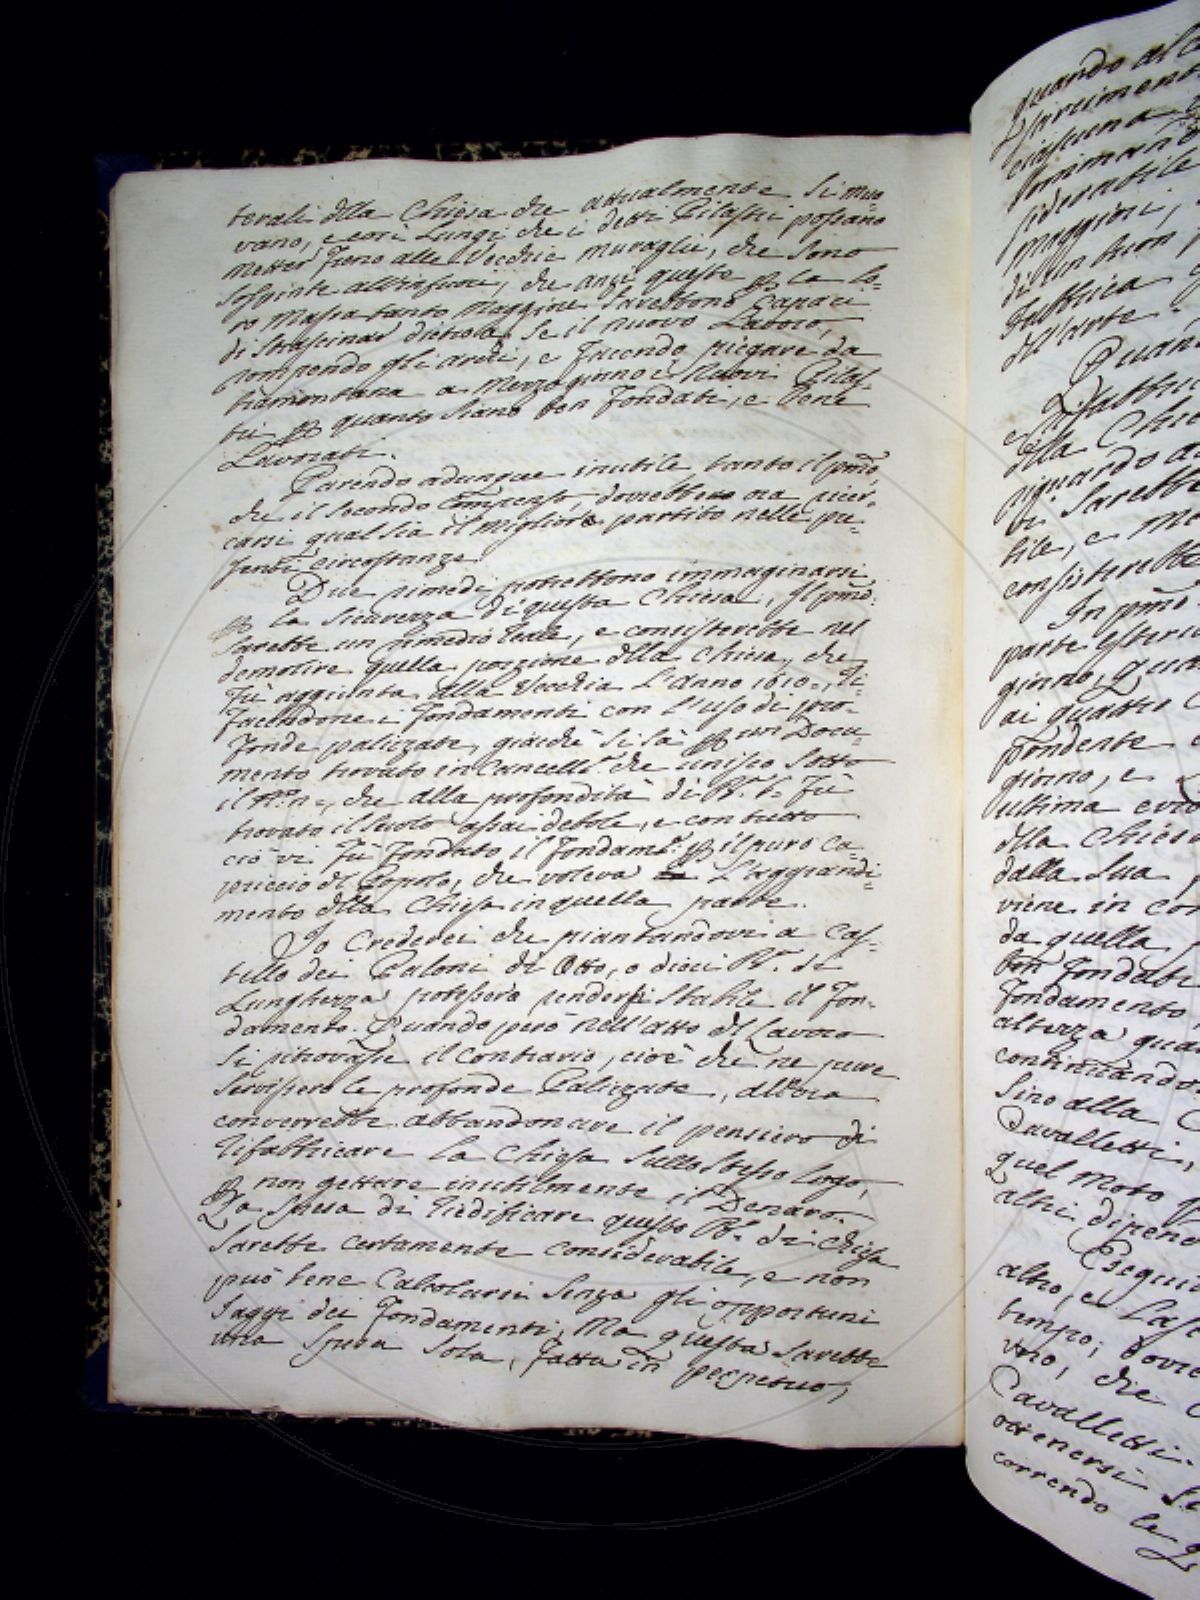 terali della Chiesa che attualmente si muo=
vano, e così Lungi che i detti Pilastri possano
metter freno alle Vecchie muraglie, che sono
sospinte all'infuori, che anzi queste per la lo=
ro Massa tanto Maggiore sarebbono capaci
di strascinar dietro a se il nuovo Lavoro,
rompendo gli archi, e facendo piegare da
tramontana a Mezzogiorno i Nuovi Pilas=
tri per quanto siano ben fondati, e bene
Lavorati.
Parendo adunque inutile tanto il pmo,
che il secondo Compenso, dovrebbero ora ricer=
carsi qual sia il migliore partito nelle pre=
senti circostanze
Due rimedi potrebbono immaginarsi
per la sicurezza di questa Chiesa, Il pmo:
sarebbe un rimedio Reale, e consisterebbe nel
demolire quella porzione della Chiesa, che
fù aggiunta alla Vecchia L'Anno 1610=, ri=
facendone i fondamenti con l'uso di pro=
fonde palizzate, giacchè si sà per un Docu=
mento trovato in Cancell.a che unisco sotto
il N.o n=, che alla profondità di B.a 6= fù
trovato il Suolo assai debole, e con tutto
ciò vi fù fondato il fondam.to per il puro ca=
priccio del Popolo, che voleva L'aggrandi=
mento della Chiesa in quella parte.
Io Crederei che piantandovi a Cas=
tello dei Paloni di Otto, o dieci B.a di
Lunghezza potessera rendersi stabile il fon=
damento. Quando però nell'atto del Lavoro
si ritrovasse il contrario, cioè che ne pure
servissero le profonde Palizzate, allora
converrebbe abbandonare il pensiero di
rifabbricare la Chiesa sullo stesso luogo,
per non gettare inutilmente il Denaro.
La Spesa di riedificare questo P.o di Chiesa
sarebbe certamente considerabile, e non
può bene Calcolarsi senza gli opportuni
saggi dei fondamenti, Ma questa sarebbe
una Spesa sola, fatta in perpetuo,
quando al
ciascuna
siderabile
maggiori,
di un buon
fabbrica
dell'arte.
Quan
della Chie
riguardo a
sarebbe
bile, e m
consisterebbe
In pmo
parte esteri
giorno, qua
ai quattro
pondente
giorno, e
ultima
della Chiesa
dalla sua
viene in con
da quella
ben fondate
fondamento
altezza qua
continuando
sino alla
Cavalletti,
quel moto
altri dipen
Esegui
altro, e Las
tempo;
uno, che
Cavalletti
ottenersi
correndo le